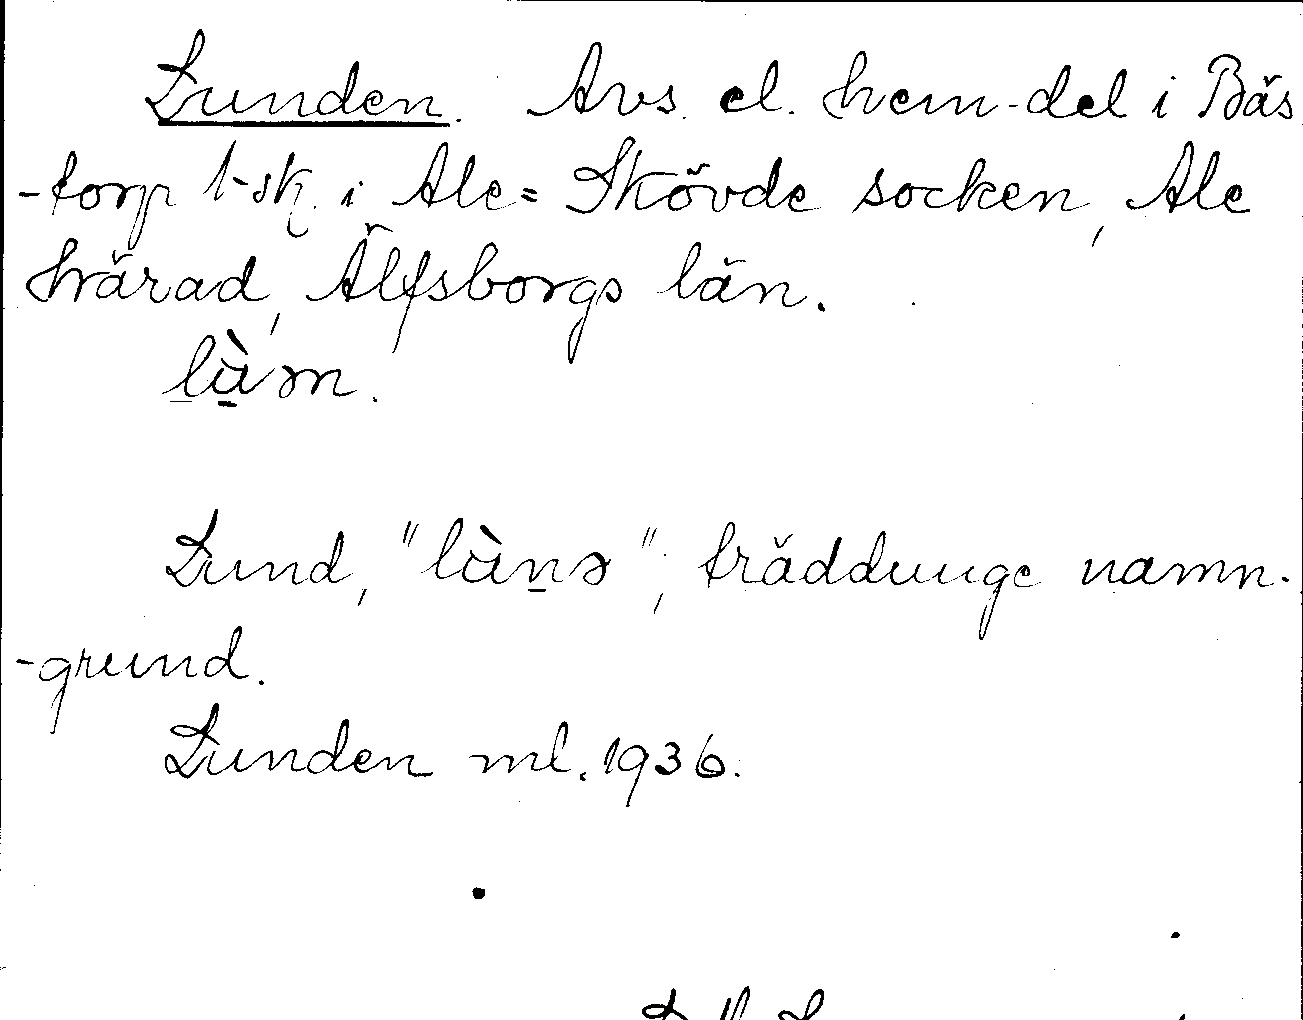 Lunden. Avs. el. hem-del i Bäs
-torp 1-sk. i Ale= Skövde socken, Ale
härad, Älfsborgs län.
Lund, "; träddunge namn-
-grund.
Lunden ml. 1936.